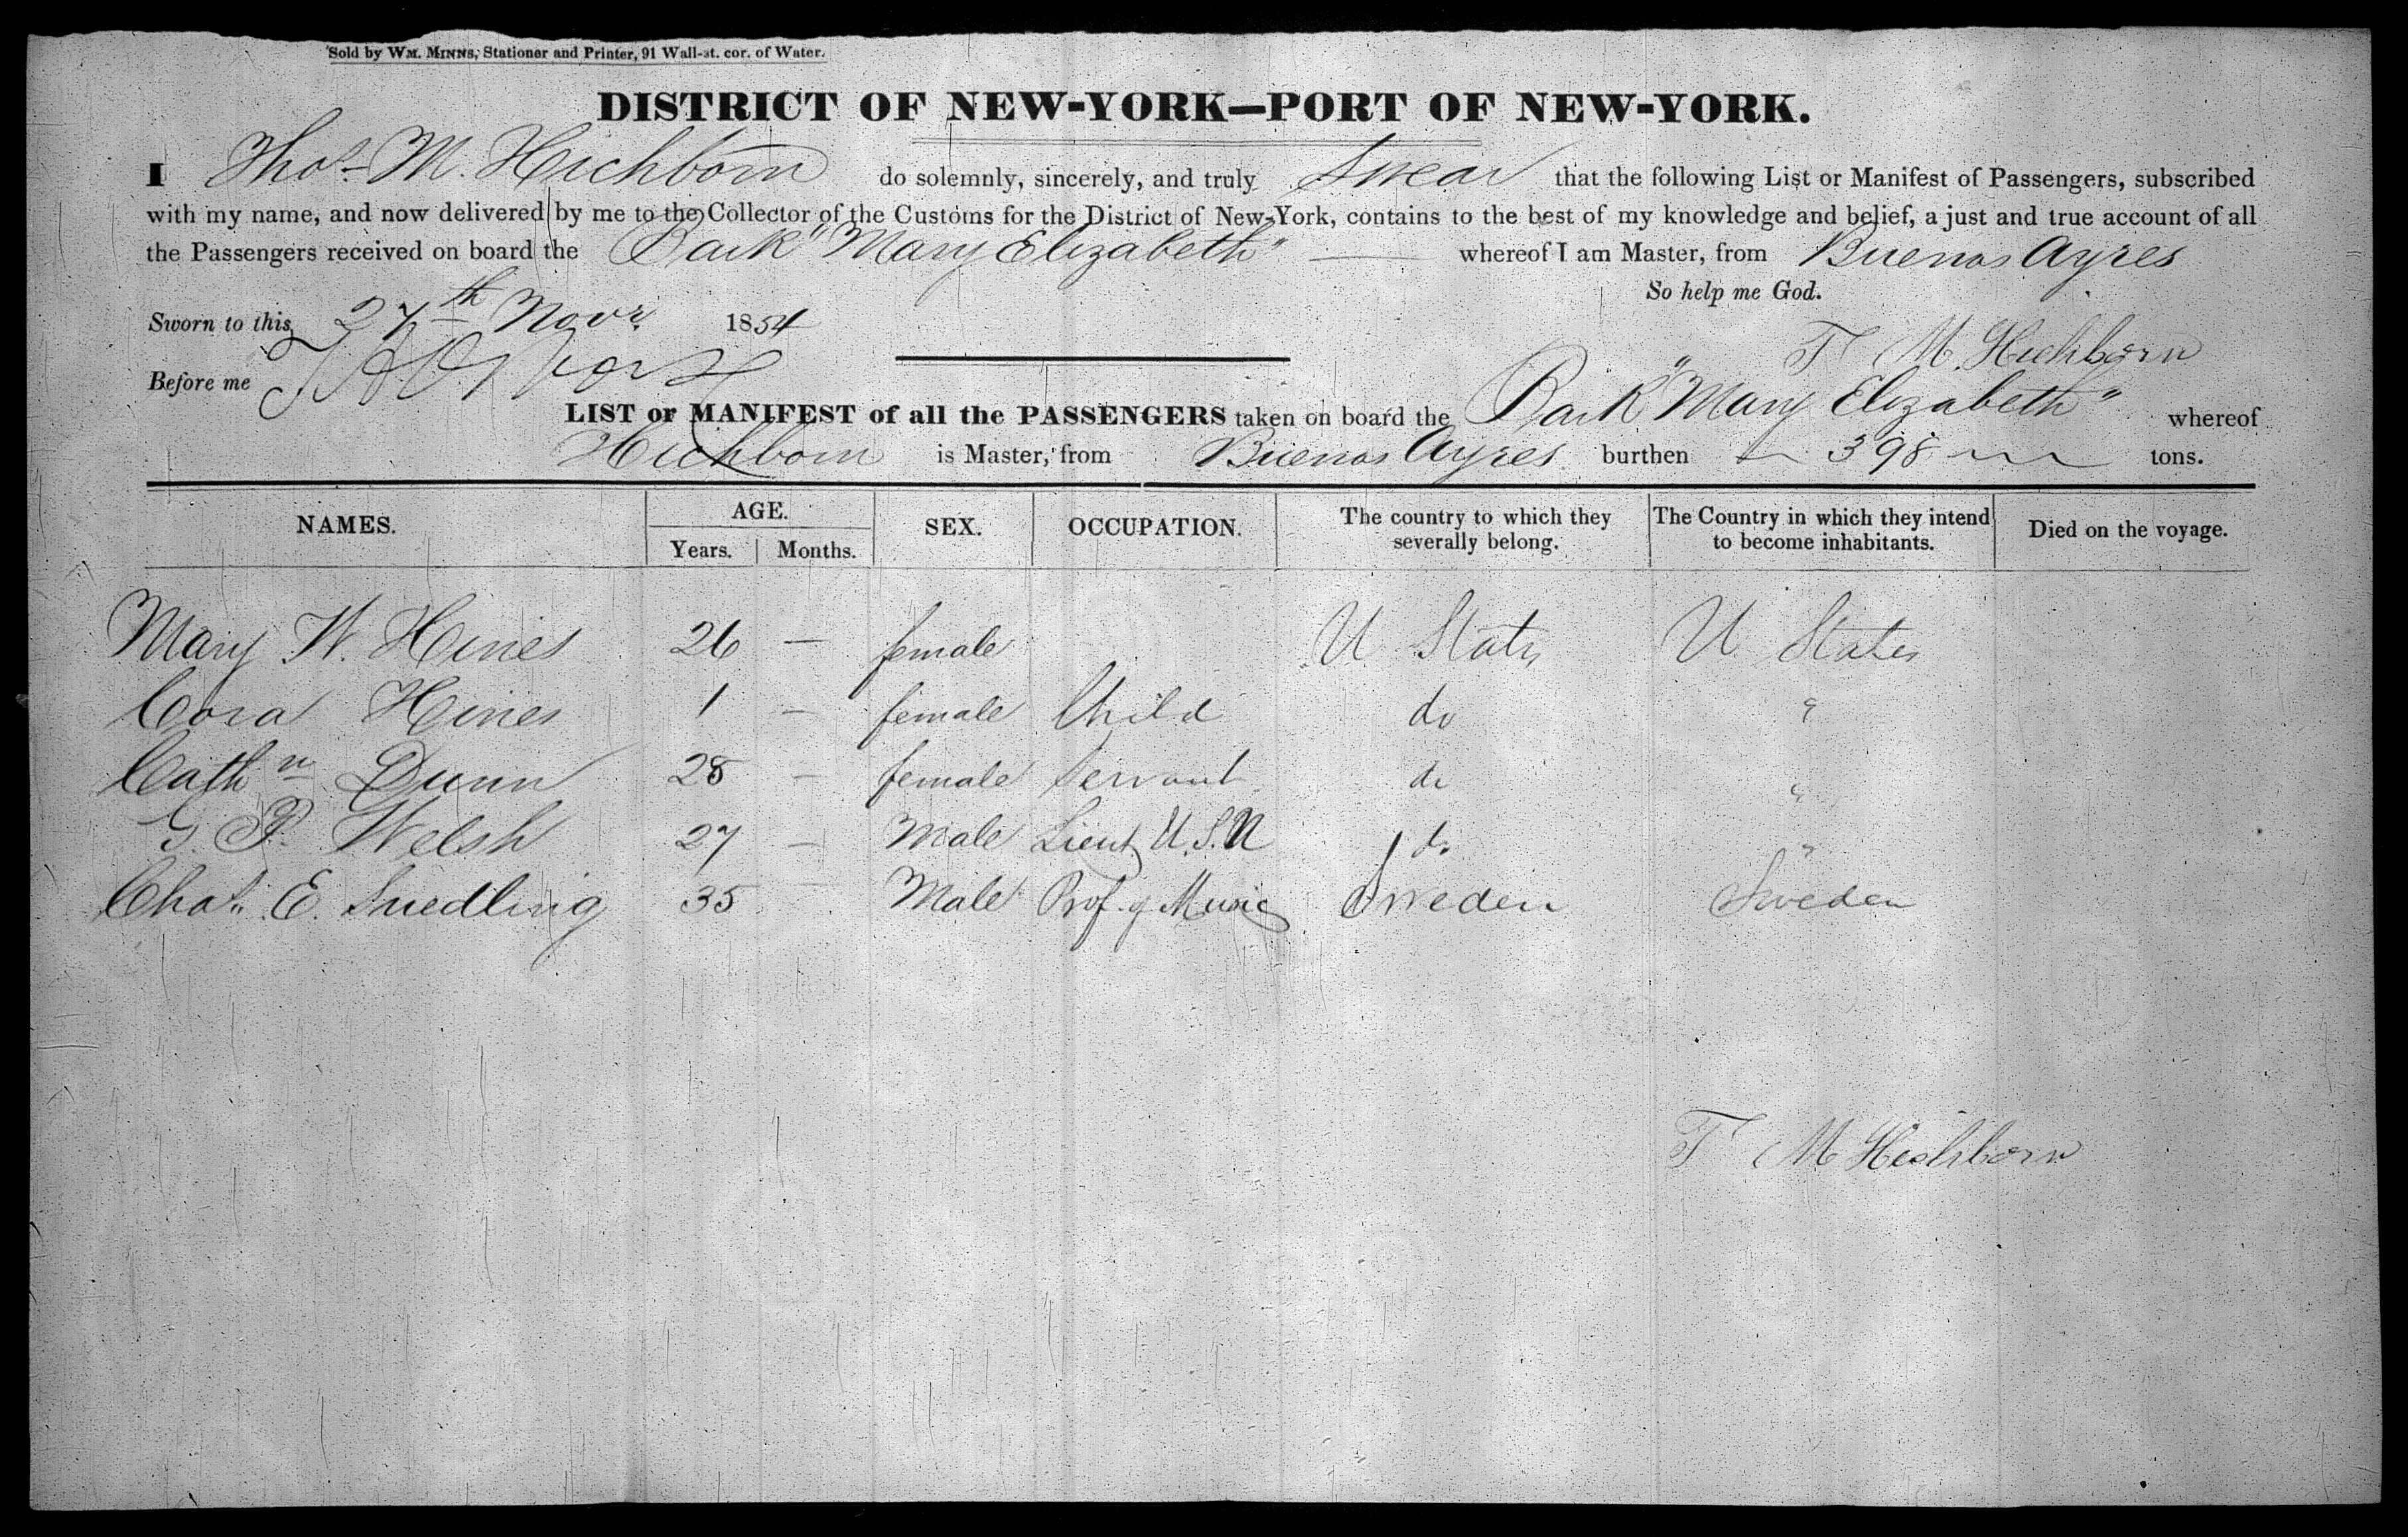 Sold by WM. MINNS, Stationer and Printer, 91 Wall-st. cor. of Water.
DISTRICT OF NEW-YORK—PORT OF NEW-YORK.
I Thos. M. Hichborn do solemnly, sincerely, and truly Swear that the following List or Manifest of Passengers, subscribed
with my name, and now delivered by me to the Collector of the Customs for the District of New-York, contains to the best of my knowledge and belief, a just and true account of all
the Passengers received on board the Bark "Mary Elizabeth" whereof I am Master, from Buenos Ayres
So help me God.
Sworn to this 27th Novr. 1854
T M. Hichborn
Before me
LIST or MANIFEST of all the PASSENGERS taken on board the Bark "Mary Elizabeth" whereof
Hichborn is Master, from Buenos Ayres burthen 398 tons.
NAMES. AGE. Years. Months. SEX. OCCUPATION. The country to which they severally belong. The Country in which they intend to become inhabitants. Died on the voyage.
Mary W. Hines 26 — female U States U States
Cora Hines 1 — female Child do "
Cathn Dunn 28 — female Servant do "
G. P. Welsh 27 — Male Lieut. U.S.N do "
Chas. E. 35 — Male Prof. of Music Sweden Sweden
T M Hichborn